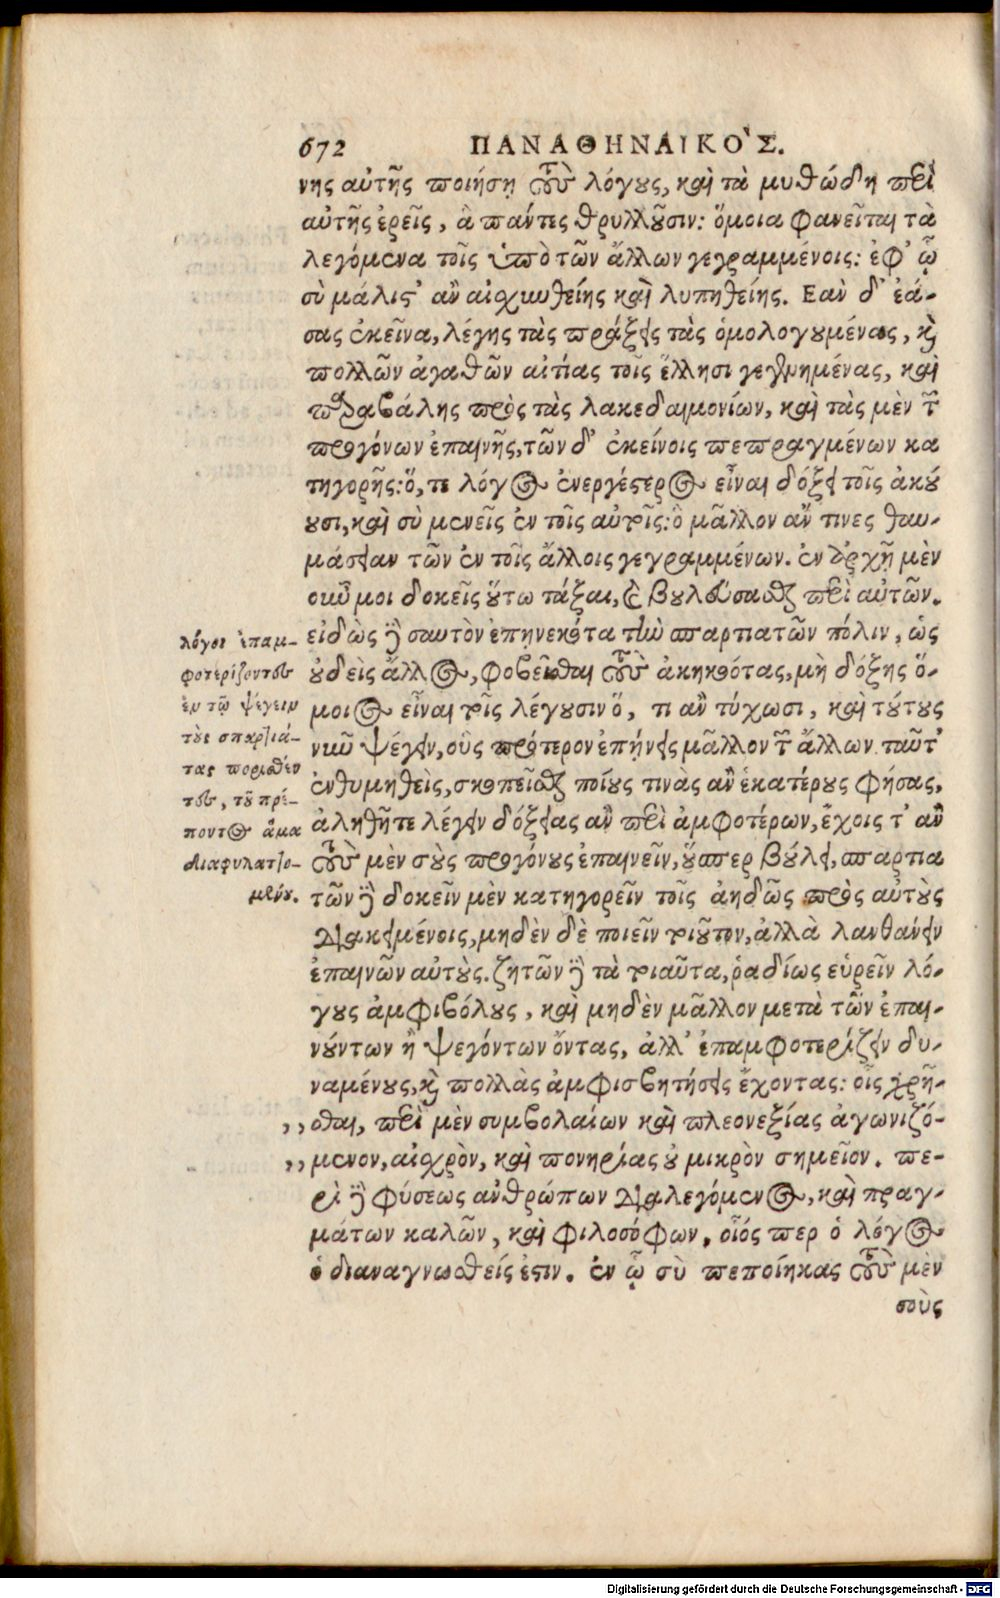 672 ΠΑΝΑΘΗΝΑΙΚΟ῀Σ.
νης αὐτῆς ποιήσῃ τοὺς λόγους, καὶ τὰ μυθώδη περὶ
αὐτῆς ἐρεῖς, ἃ πάντες θρυλλοῦσιν: ὅμοια φανεῖται τὰ
λεγόμενα τοῖς ὑπὸ τῶν ἄλλων γεγραμμένοις: ἐφ' ᾧ
σὺ μάλις' ἂν αἰσχυνθείης καὶ λυπηθείης. Εαν δ' ἐά-
σας ἐκεῖνα, λέγης τὰς πράξεις τὰς ὁμολογουμένας, καὶ
πολλῶν ἀγαθῶν αἰτίας τοῖς ἕλλησι γεγενημένας, καὶ
παραβάλης πρὸς τὰς λακεδαιμονίων, καὶ τὰς μὲν τῶν
προγόνων ἐπαινῆς, τῶν δ' ἐκείνοις πεπραγμένων κα
τηγορῆς: ὅ, τε λόγος ἐνεργέστερος εἶναι δόξει τοῖς ἀκού
ουσι, καὶ σὺ μενεῖς ἐν τοῖς αὐτοῖς: ὃ μᾶλλον ἄν τινες θαυ-
μάσειαν τῶν ἐν τοῖς ἄλλοις γεγραμμένων. ἐν ἀρχῇ μὲν
οὖν μοι δοκεῖς οὕτω τάξαι, καὶ βουλεύσασθαι περὶ αὐτῶν.
εἰδὼς δὲ σαυτὸν ἐπῃνεκότα τὴν σπαρτιατῶν πόλιν, ὡς
οὐδεὶς ἄλλος, φοβεῖσθαι τοὺς ἀκηκοότας, μὴ δόξης ὅ-
μοιος εἶναι τοῖς λέγουσιν ὅ, τι ἂν τύχωσι, καὶ τούτους
νῦν ψέγειν, οὓς πρότερον ἐπῄνεις μᾶλλον τῶν ἄλλων. ταῦτ'
ἐνθυμηθεὶς, σκοπεῖσθαι ποίους τινὰς ἂν ἑκατέρους φήσας,
ἀληθῆ τε λέγειν δόξειας ἂν περὶ ἀμφοτέρων, ἔχοις τ' ἂν
τοὺς μὲν σοὺς προγόνους ἐπαινεῖν, οὕσπερ βούλει, σπαρτια
τῶν δὲ δοκεῖν μὲν κατηγορεῖν τοῖς ἀηδῶς πρὸς αὐτοὺς
διακειμένοις, μηδὲν δὲ ποιεῖν τοιοῦτον, ἀλλὰ λανθάνειν
ἐπαινῶν αὐτούς. ζητῶν δὲ τὰ τοιαῦτα, ῥαδίως εὑρεῖν λό-
γους ἀμφιβόλους, καὶ μηδὲν μᾶλλον μετὰ τῶν ἐπαι-
νούντων ἢ ψεγόντων ὄντας, ἀλλ' ἐπαμφοτερίζειν δυ-
ναμένους, καὶ πολλὰς ἀμφισβητήσεις ἔχοντας: οἷς χρῆ-
,,σθαι, περὶ μὲν συμβολαίων καὶ πλεονεξίας ἀγωνιζό-
,,μενον, αἰσχρὸν, καὶ πονηρίας οὐ μικρὸν σημεῖον. πε-
ρὶ δὲ φύσεως ἀνθρώπων διαλεγόμενος, καὶ πραγ-
μάτων καλῶν, καὶ φιλοσόφων. οἷός περ ὁ λόγος
ὁ διαναγνωσθείς ἐστιν. ἐν ᾧ σὺ πεποίηκας τοὺς μὲν
σοὺς
λόγοι ἐπαμ-
φοτερίζοντες
ἐν τῷ ψέγειν
τοὺς σπαρτιά-
τας πορισθέν
τες, τοῦ πρέ-
ποντος ἅμα
διαφυλαττο-
μένου.
Digitalisierung gefördert durch die Deutsche Forschungsgemeinschaft - DFG